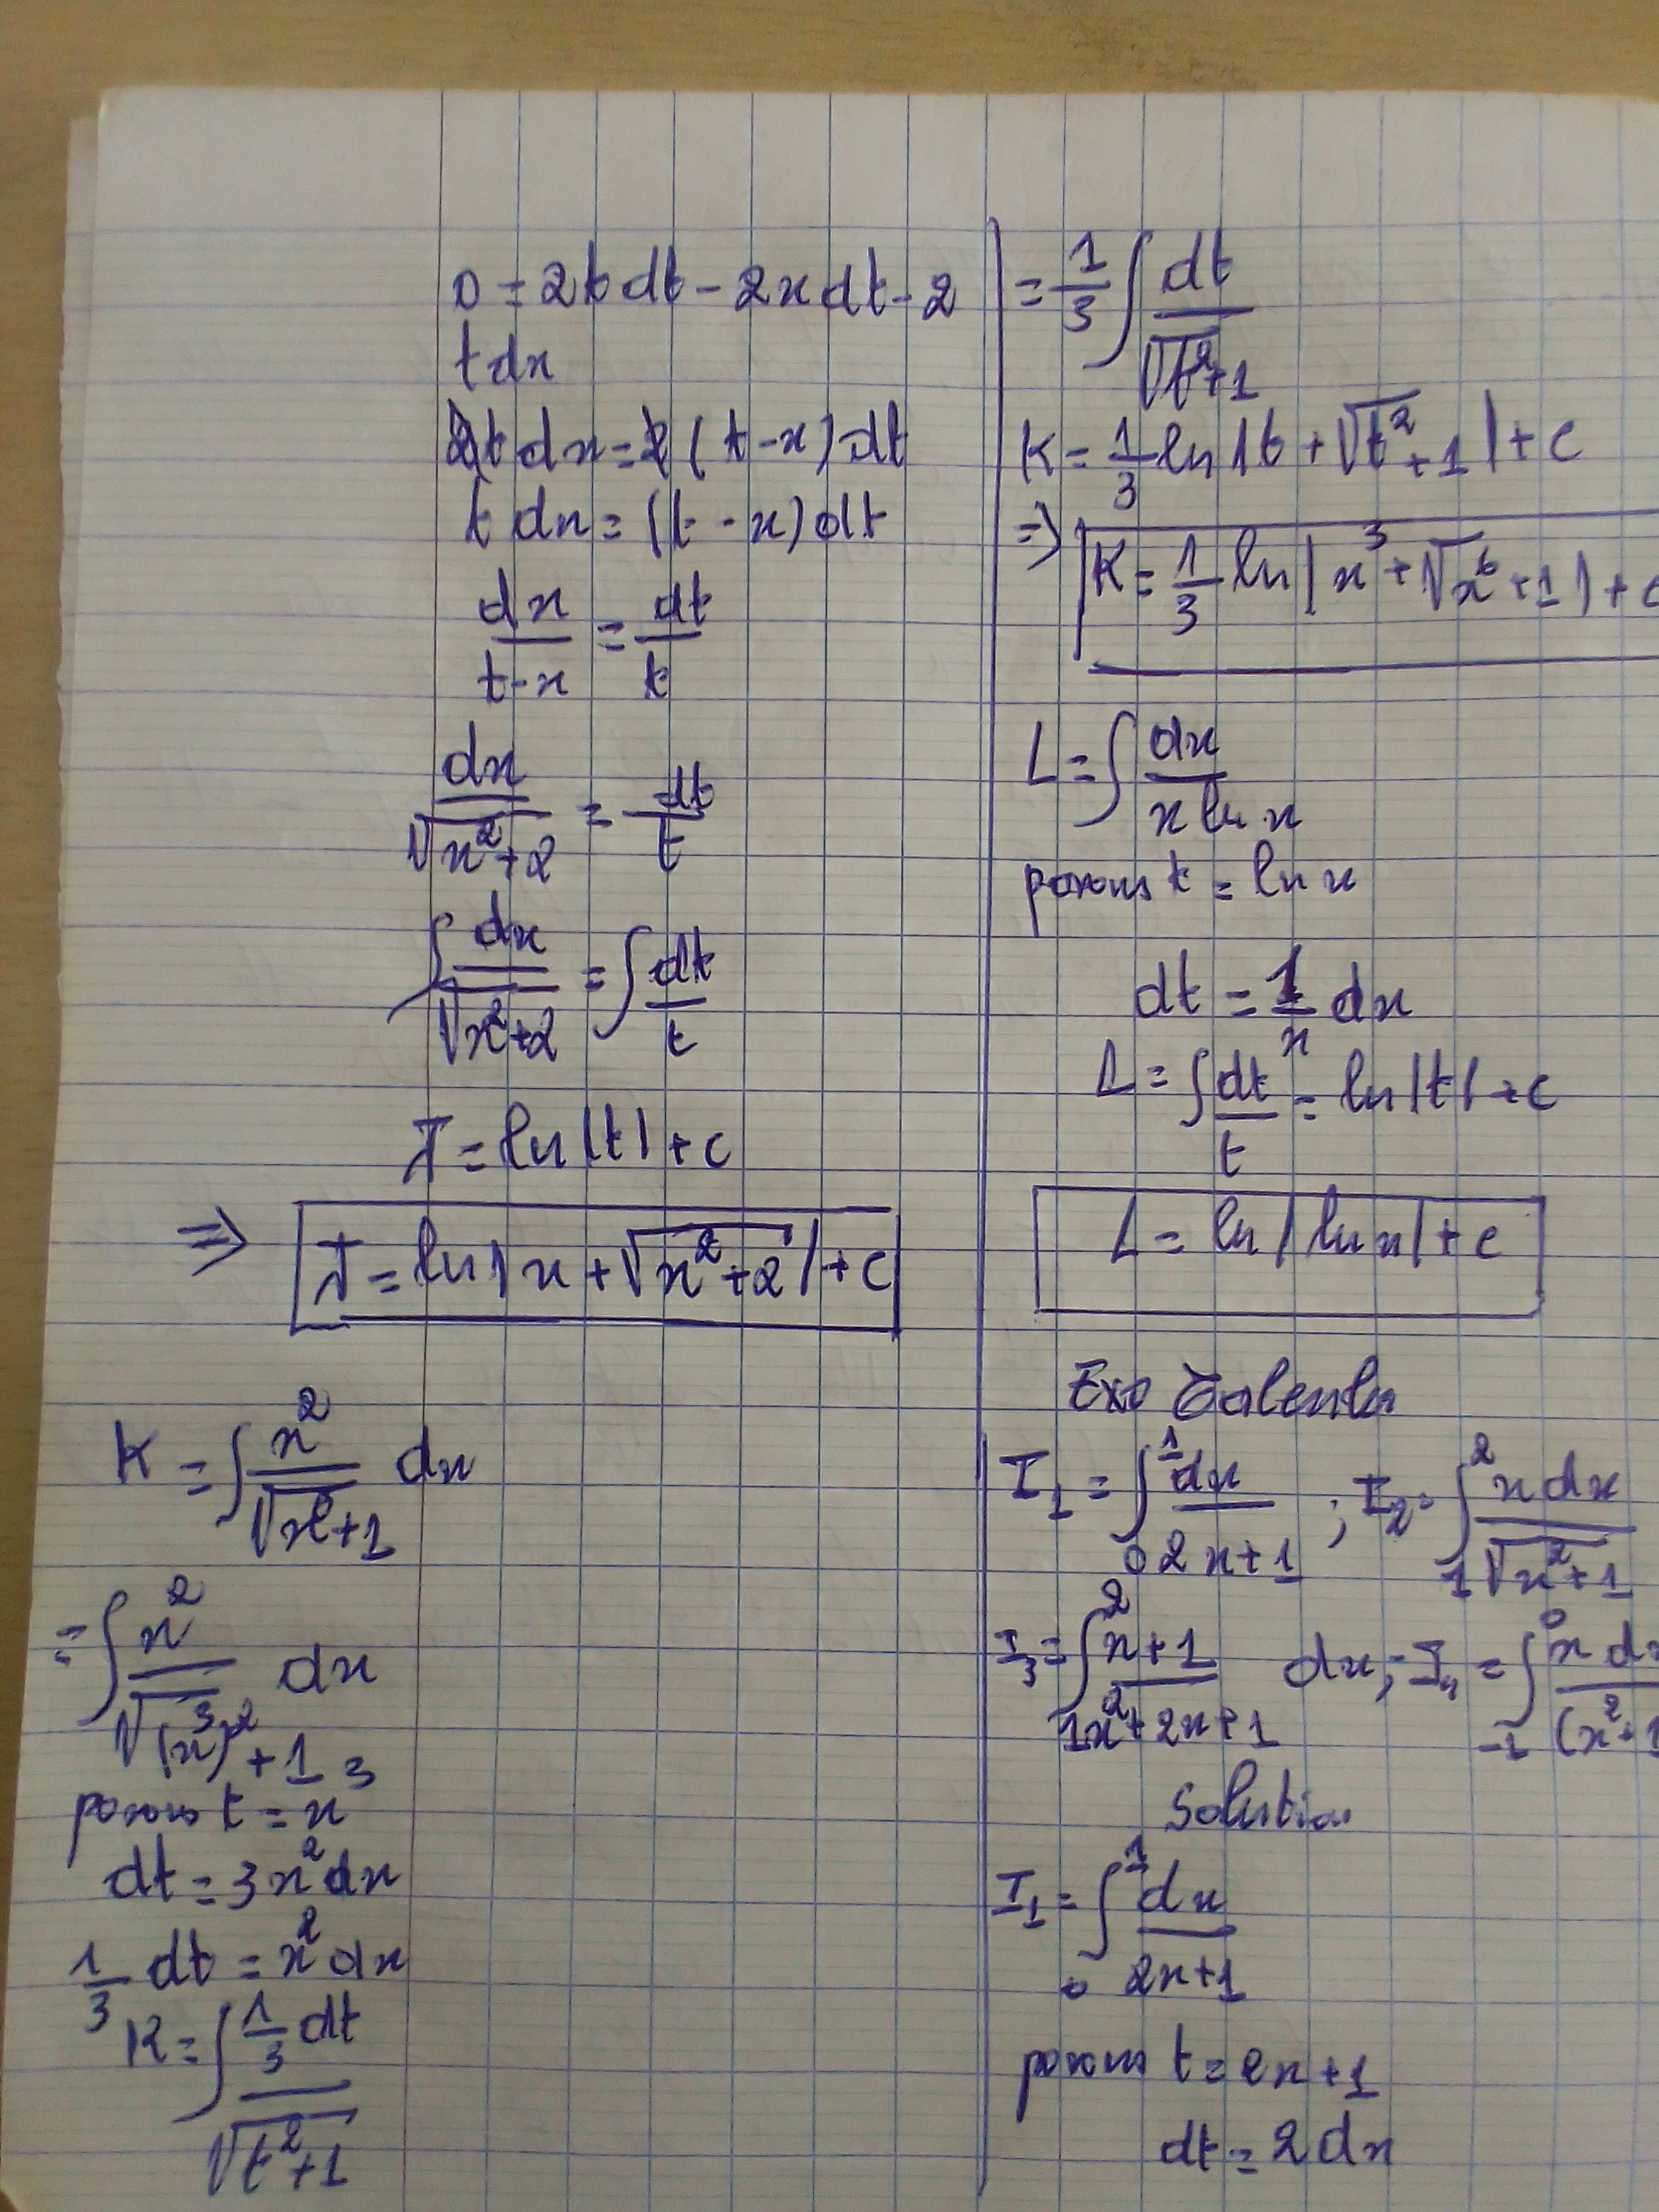 0 = 2t dt - 2x dt - 2
t dx
2t dx = 2 (t - x) dt
t dx = (t - x) dt
dx/(t - x) = dt/t
dx/√(x²+2) = dt/t
∫ dx/√(x²+2) = ∫ dt/t
J = ln|t| + c
⇒ J = ln|x + √(x²+2)| + c
K = ∫ x²/√(x⁶+1) dx
= ∫ x²/√((x³)²+1) dx
posons t = x³
dt = 3x² dx
1/3 dt = x² dx
K = ∫ (1/3 dt)/√(t²+1)
= 1/3 ∫ dt/√(t²+1)
K = 1/3 ln|t + √(t²+1)| + c
⇒ K = 1/3 ln|x³ + √(x⁶+1)| + c
L = ∫ dx/(x ln x)
posons t = ln x
dt = 1/x dx
L = ∫ dt/t = ln|t| + c
L = ln|ln x| + c
Exo Calculer
I₁ = ∫₀¹ dx/(2x+1) ; I₂ = ∫₁² x dx/√(x²+1)
I₃ = ∫₁² (x+1)/(x²+2x+1) dx ; I₄ = ∫₋₁⁰ x dx/(x²+1
Solution
I₁ = ∫₀¹ dx/(2x+1)
posons t = 2x+1
dt = 2 dx